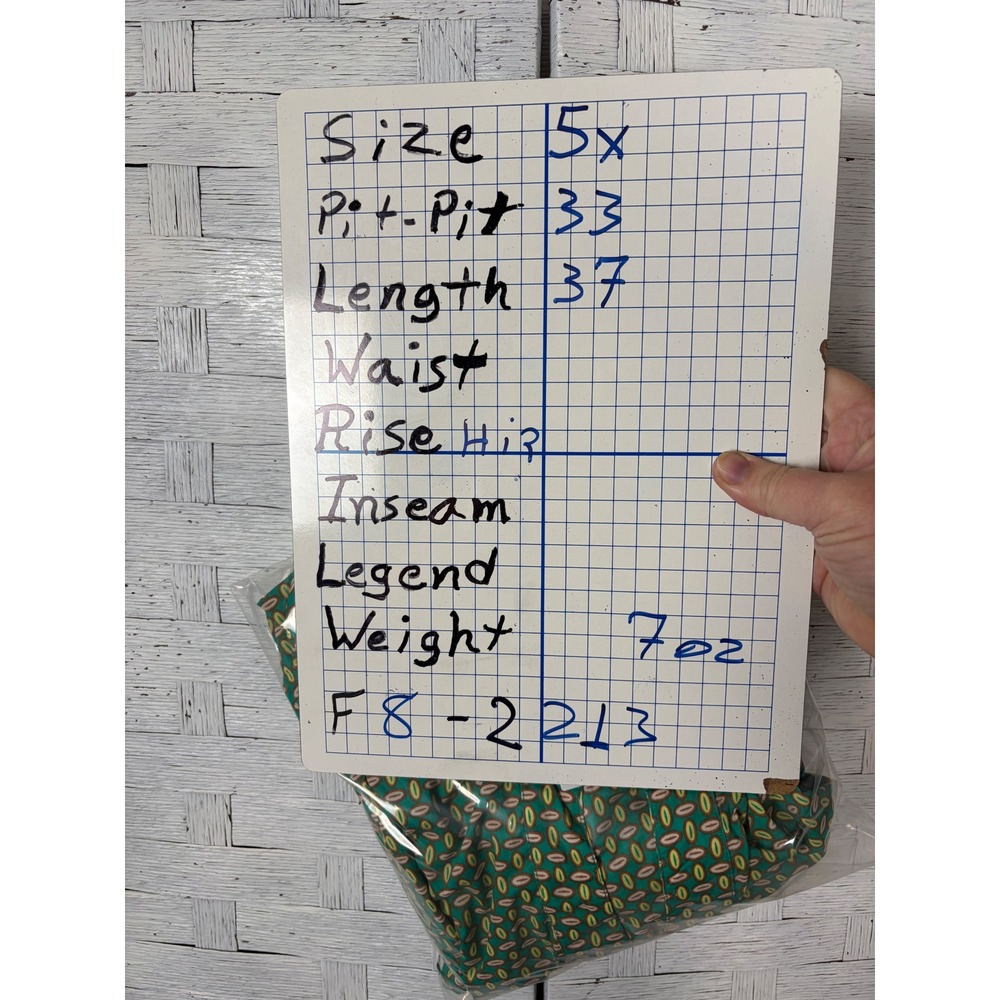 Size 5x
Pit-Pit 33
Length 37
Waist
Rise Hip
Inseam
Legend
Weight 7oz
F8-2213